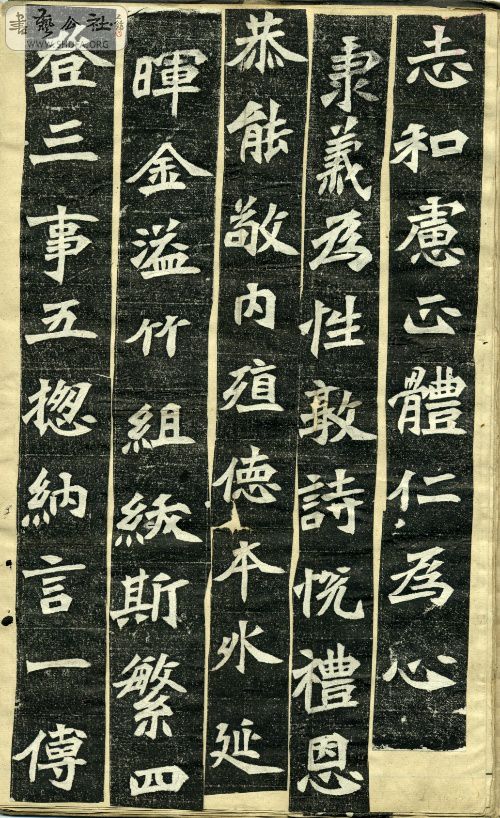 志和慮正體仁為心
秉義為性敦詩悦禮恩
恭能敬内殖德本外延
暉金溢竹組紱斯繁四
登三事五揔納言一傅
書藝公社